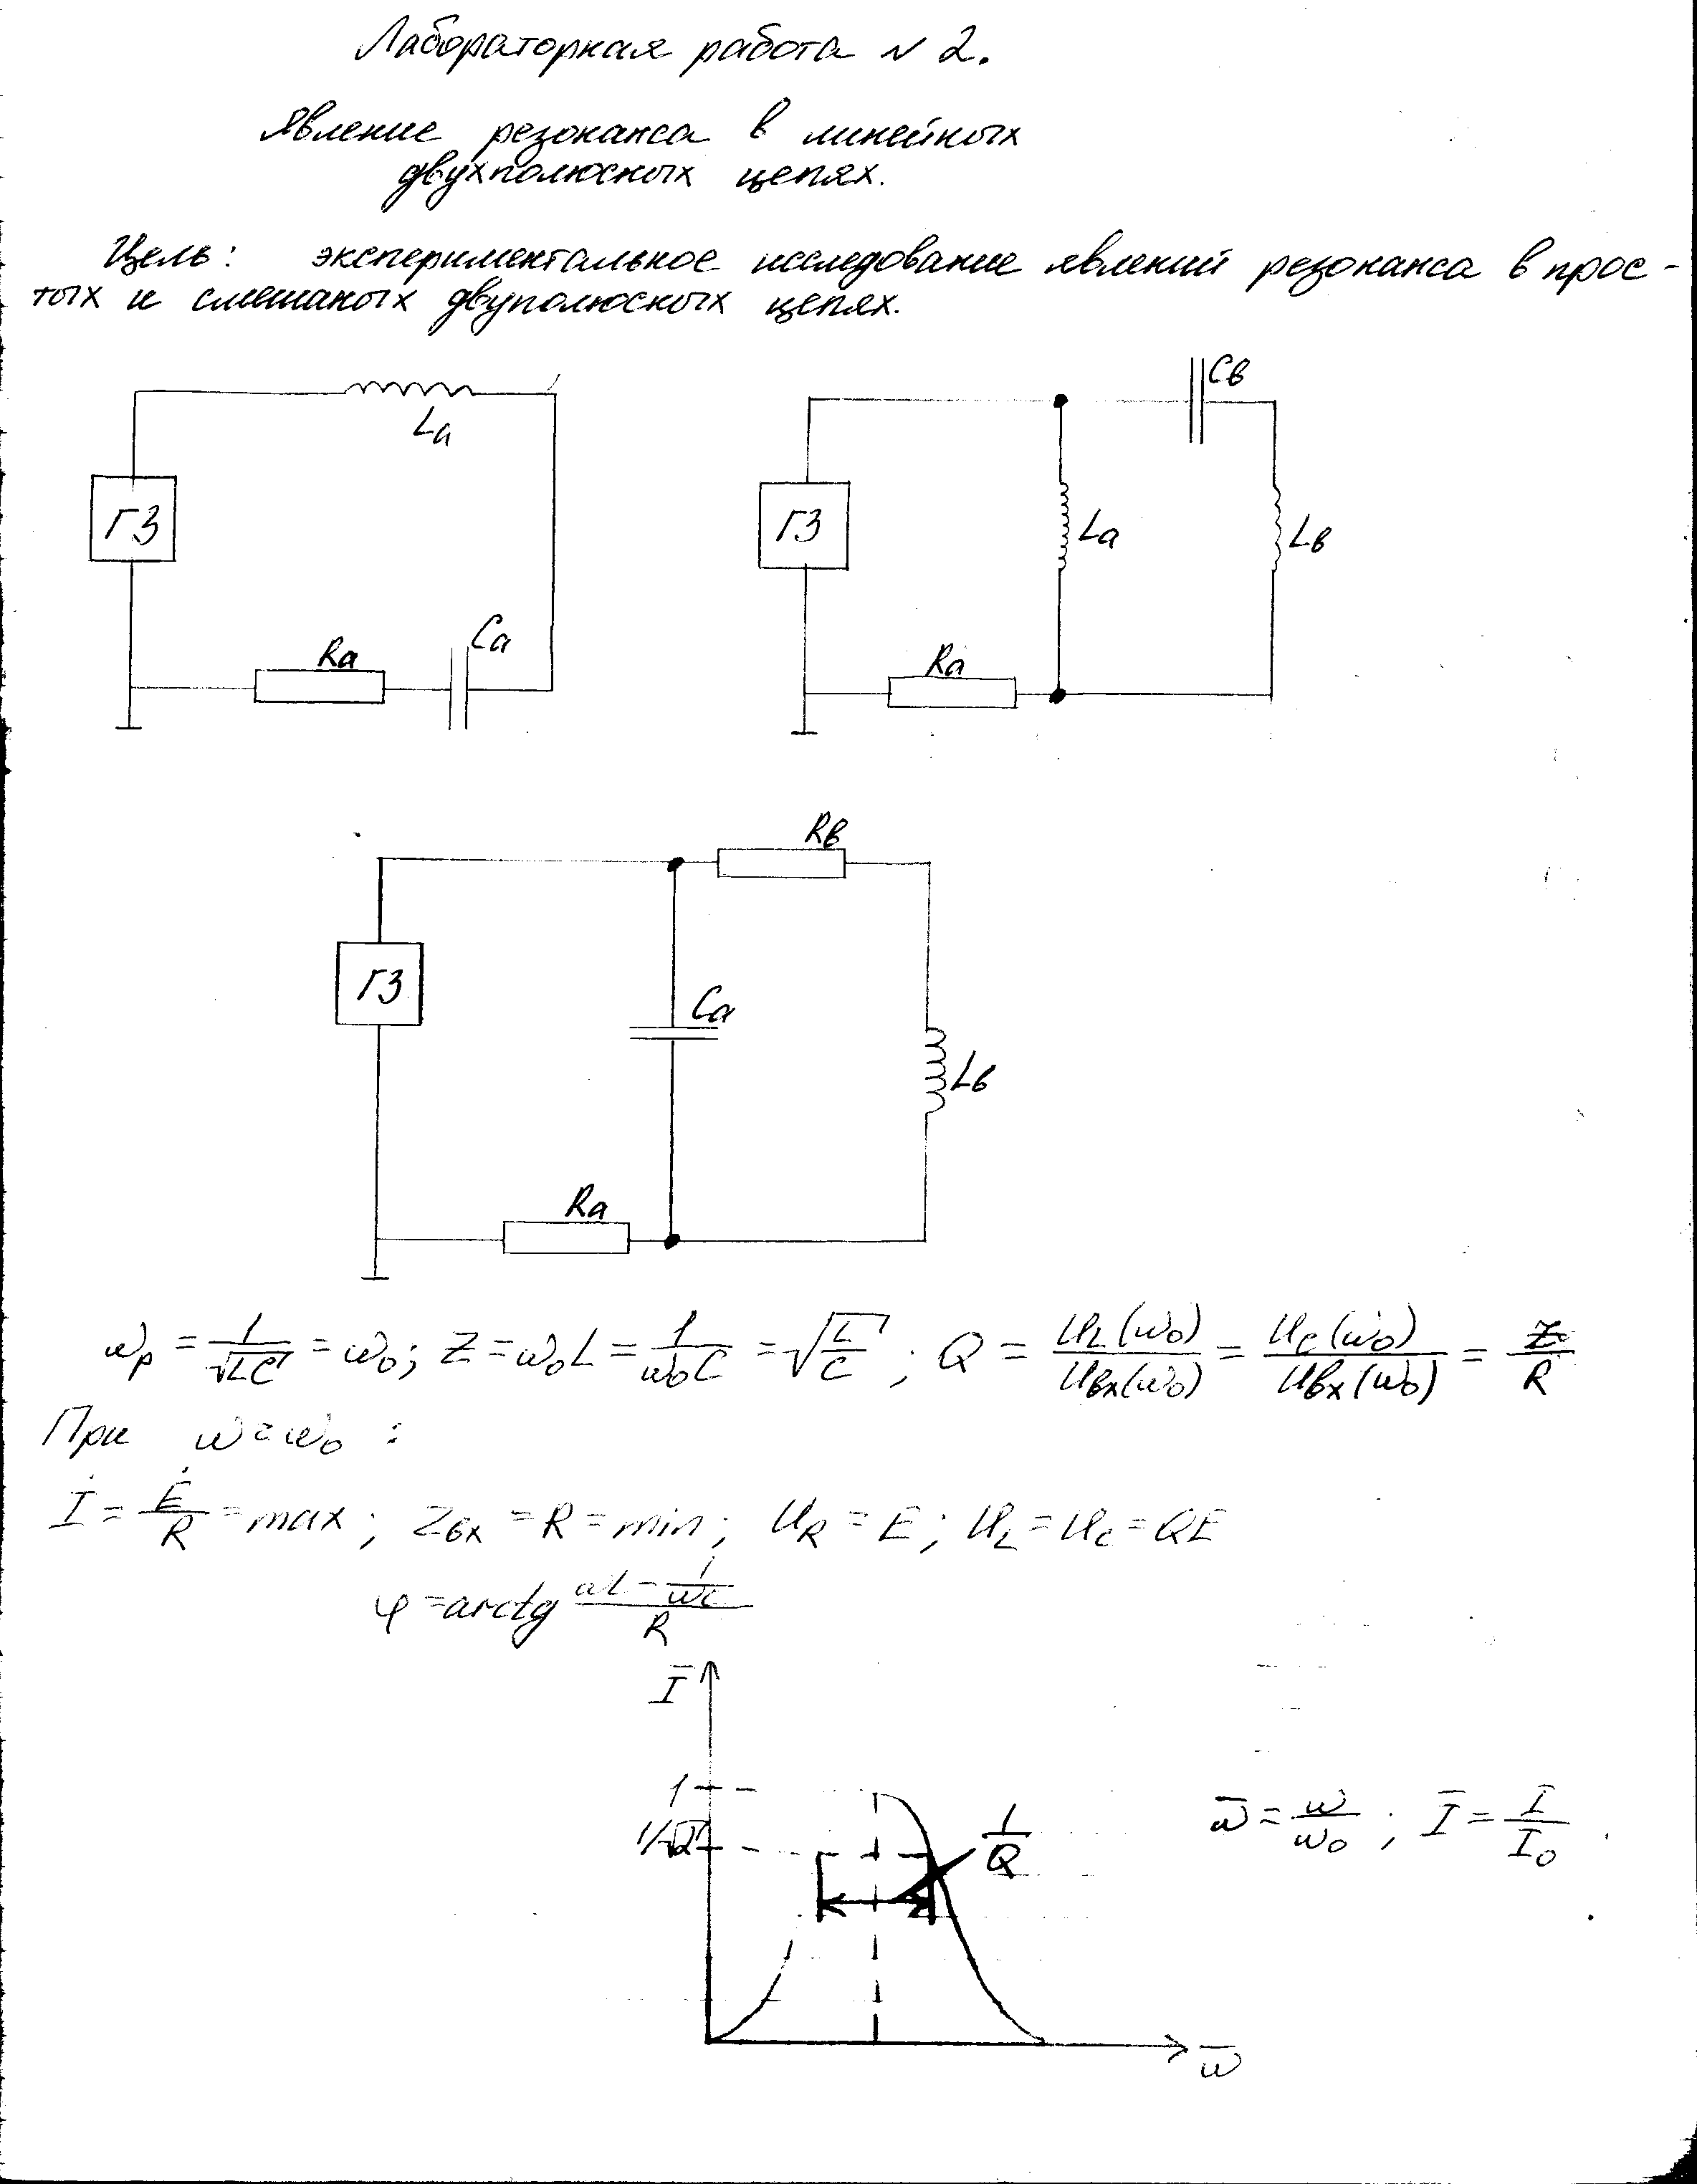 Лабораторная работа N 2.
Явление резонанса в линейных
двухполюсных цепях.
Цель: экспериментальное исследование явлений резонанса в прос-
тых и смешаных двуполюсных цепях.
ГЗ La Ra Ca
ГЗ La Cв Lв Ra
ГЗ Rв Ca Lв Ra
ωр = 1/√LC = ω₀; Z = ω₀L = 1/ω₀C = √(L/C); Q = U_L(ω₀)/Uвх(ω₀) = U_C(ω₀)/Uвх(ω₀) = Z/R
При ω = ω₀ :
İ = Ė/R = max; Zвх = R = min; U_R = E; U_L = U_C = QE
φ = arctg (ωL − 1/ωC)/R
Ī
1
1/√2
1/Q
ω̄ = ω/ω₀; Ī = I/I₀.
ω̄